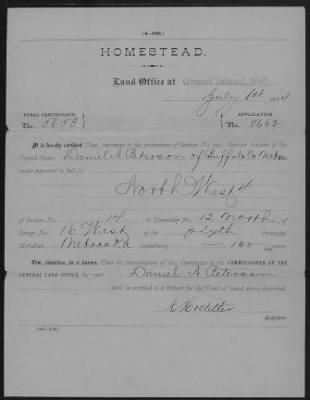 HOMESTEAD.
Land Office at Grand Island, Neb.
July 1st 1884
FINAL CERTIFICATE, APPLICATION
No. 5653 No. 8662
It is hereby certified That, pursuant to the provisions of Section No. 2291, Revised Statutes of the
United States, Daniel A Peterson of Buffalo Co Neb. has
made payment in full for
North West 4
of Section No. 14 in Township No. 12 North, of
Range No. 16 West of the Sixth Principal
Meridian Nebraska containing 160 acres.
Now, therefore, be it known, That on presentation of this Certificate to the COMMISSIONER OF THE
GENERAL LAND OFFICE, the said Daniel A Peterson
shall be entitled to a Patent for the Tract of Land above described.
C Hostetter
Register.